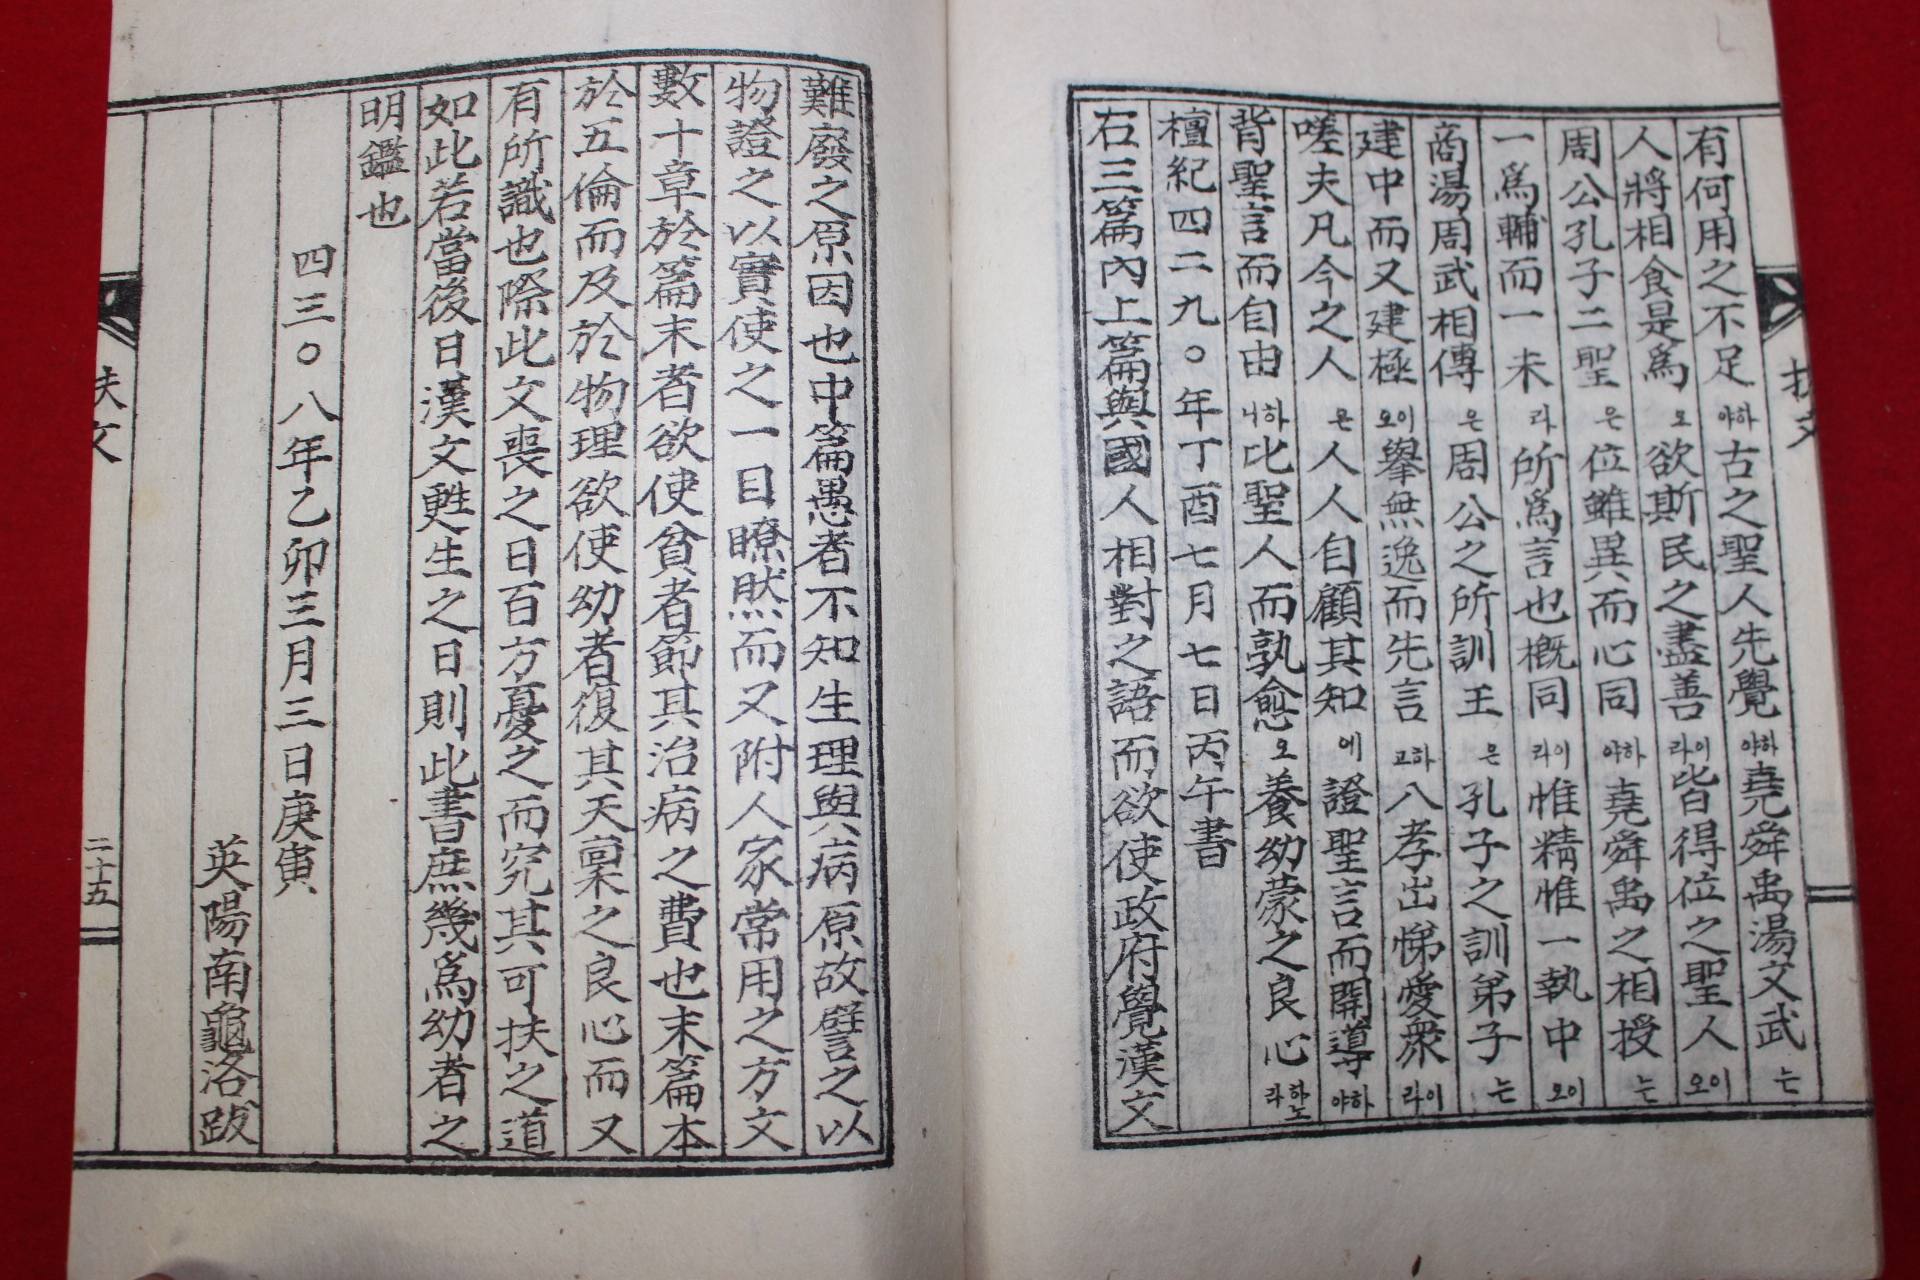 有何用之不足야하古之聖人先覺야하堯舜禹湯文武는
人將相食是爲오欲斯民之盡善라이皆得位之聖人오이
周公孔子二聖은位雖異而心同야하堯舜禹之相授는
一爲輔而一未라所爲言也槪同라이惟精惟一執中오이
商湯周武相傳은周公之所訓王은孔子之訓弟子는
建中而又建極오이擧無逸而先言고하入孝出悌愛衆라이
嗟夫凡今之人은人人自顧其知에證聖言而開導야하
背聖言而自由니하比聖人而孰愈오養幼蒙之良心라하노
檀紀四二九○年丁酉七月七日丙午書
右三篇內上篇與國人相對之語而欲使政府覺漢文
扶文
難廢之原因也中篇愚者不知生理與病原故譬之以
物證之以實使之一目瞭然而又附人家常用之方文
數十章於篇末者欲使貧者節其治病之費也末篇本
於五倫而及於物理欲使幼者復其天稟之良心而又
有所識也際此文喪之日百方憂之而究其可扶之道
如此若當後日漢文甦生之日則此書庶幾爲幼者之
明鑑也
四三○八年乙卯三月三日庚寅
英陽南龜洛跋
扶文
二十五